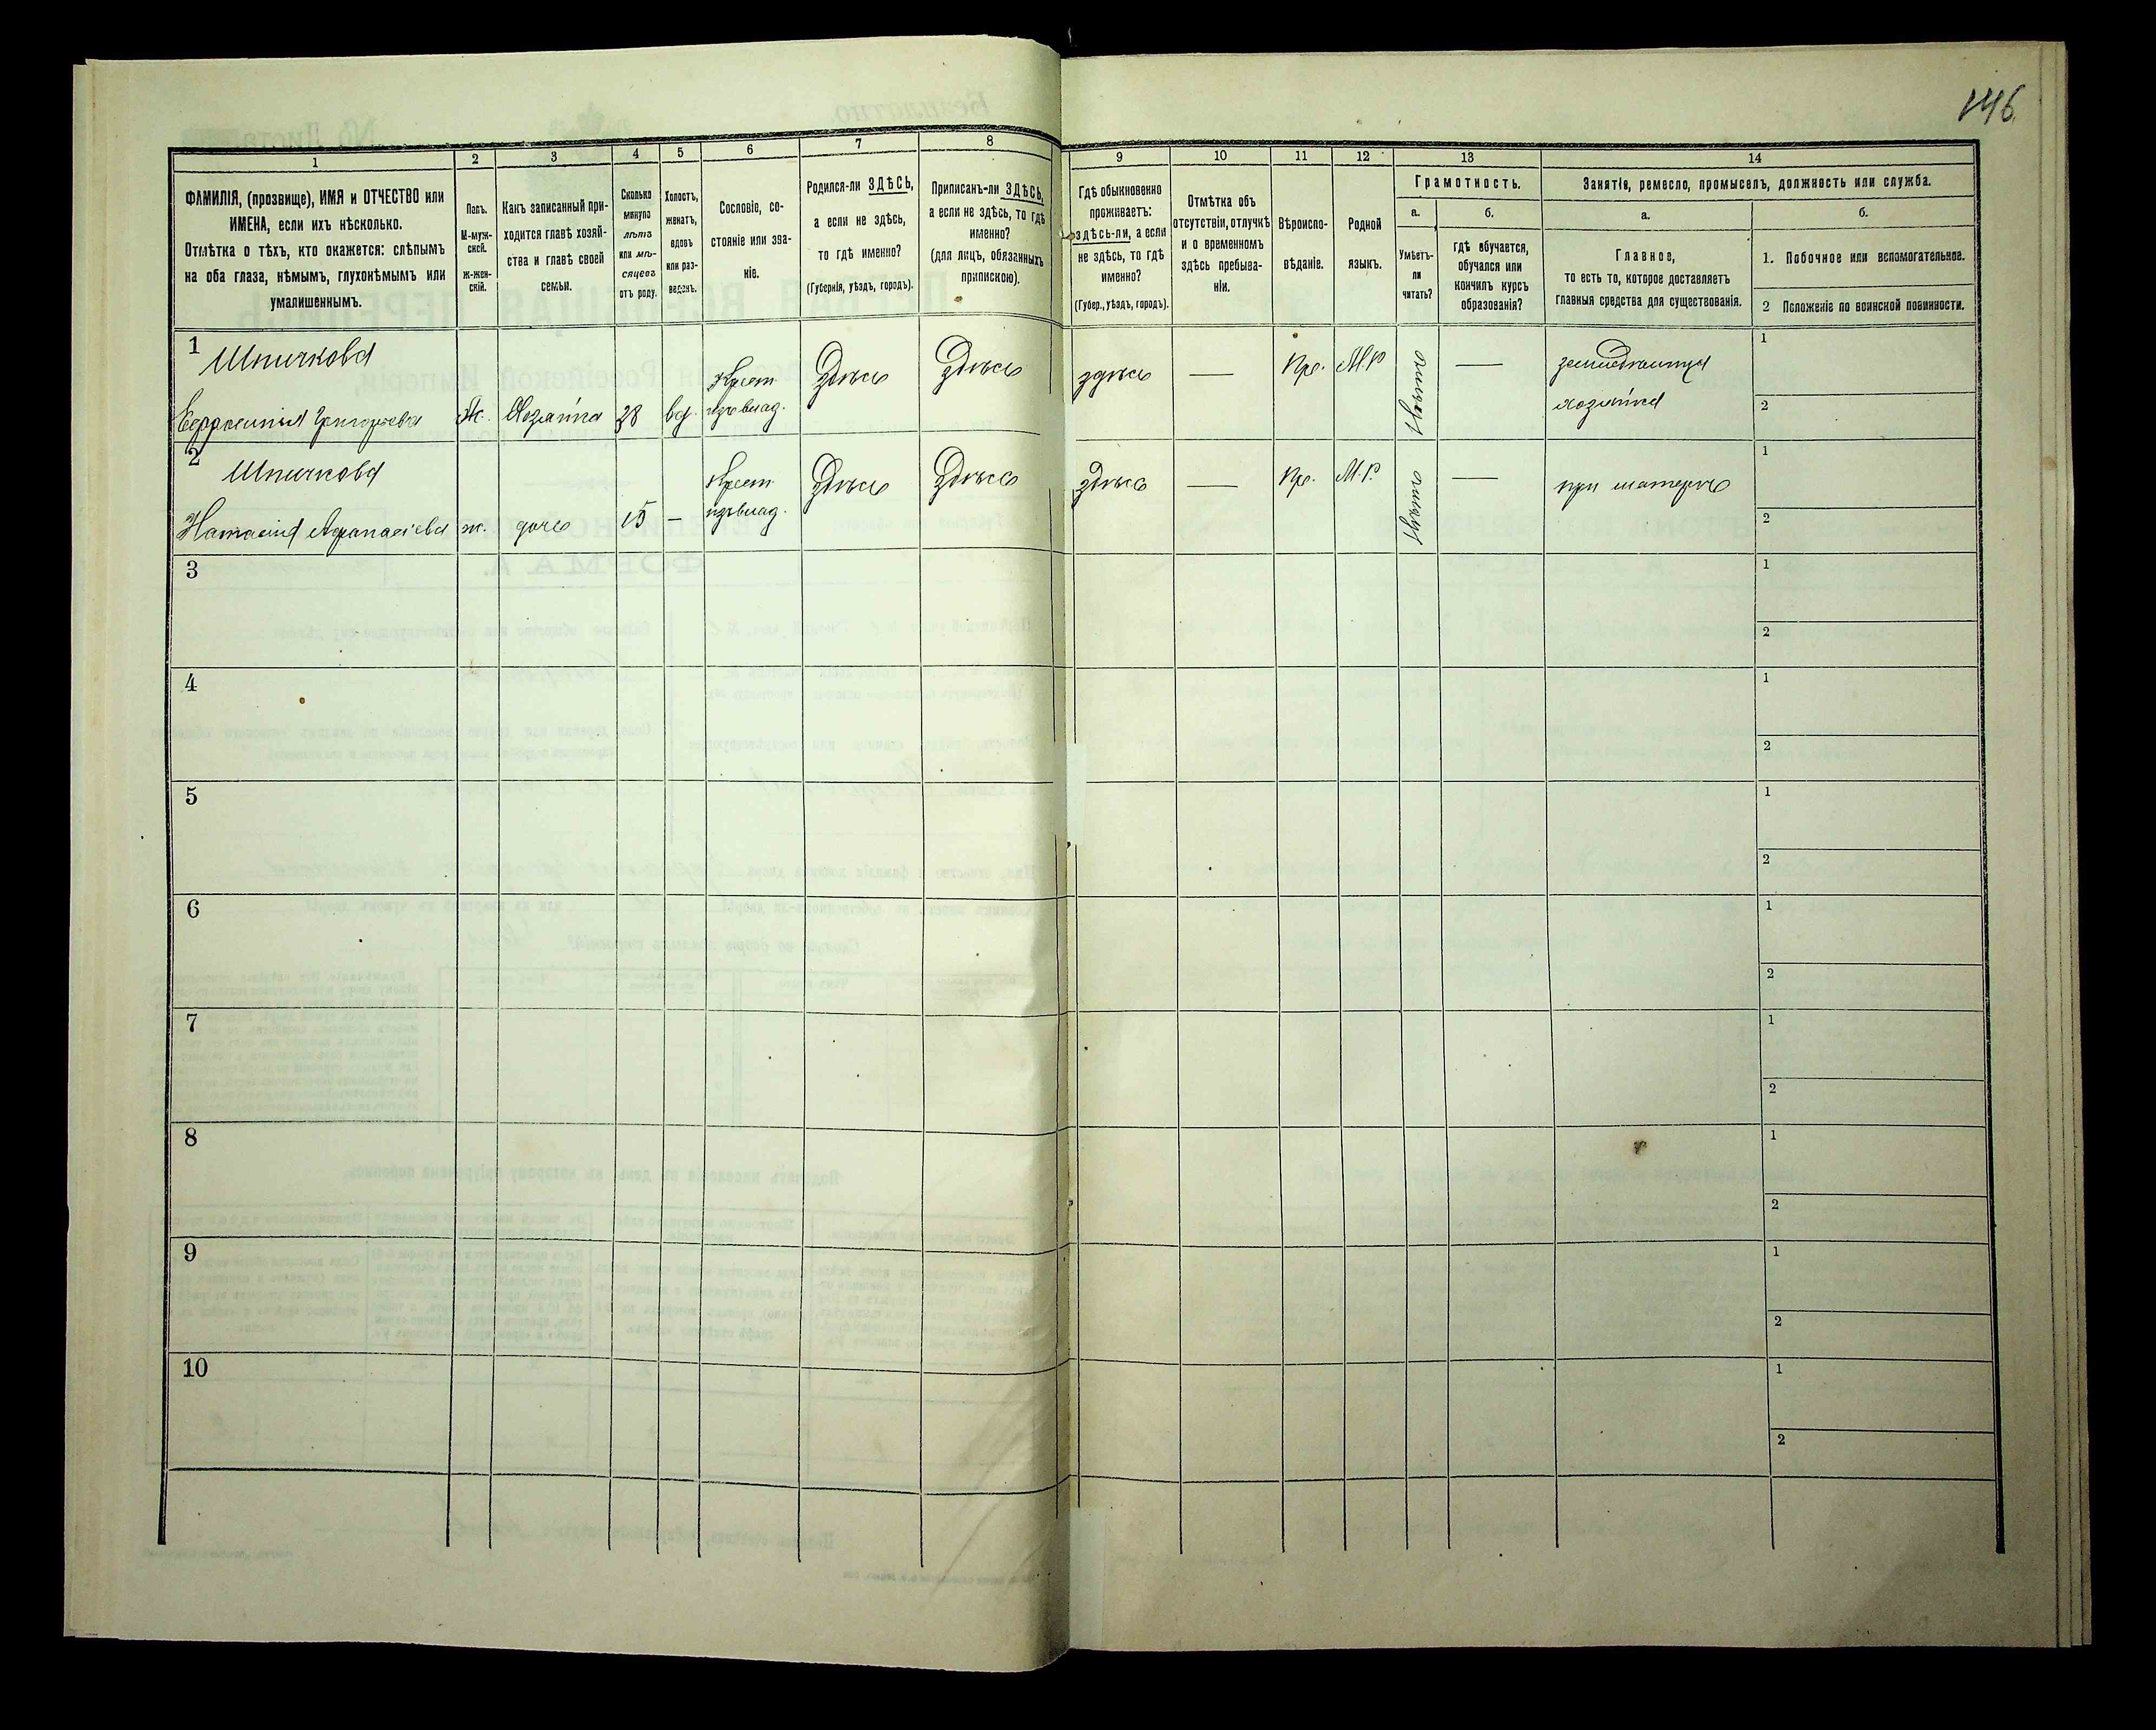 146.
1
2
3
4
5
6
7
8
9
10
11
12
13
14
ФАМИЛІЯ, (прозвище), ИМЯ и ОТЧЕСТВО или
ИМЕНА, если ихъ нѣсколько.
Отмѣтка о тѣхъ, кто окажется: слѣпымъ
на оба глаза, нѣмымъ, глухонѣмымъ или
умалишеннымъ.
Полъ.
М-муж-
ской.
Ж-жен-
скій.
Какъ записанный при-
ходится главѣ хозяй-
ства и главѣ своей
семьи.
Сколько
минуло
лѣтъ
или мѣ-
сяцевъ
отъ роду.
Холостъ,
женатъ,
вдовъ
или раз-
веденъ.
Сословіе, со-
стояніе или зва-
ніе.
Родился-ли ЗДѢСЬ,
а если не здѣсь,
то гдѣ именно?
(Губернія, уѣздъ, городъ).
Приписанъ-ли ЗДѢСЬ,
а если не здѣсь, то гдѣ
именно?
(для лицъ, обязанныхъ
припискою).
Гдѣ обыкновенно
проживаетъ:
здѣсь-ли, а если
не здѣсь, то гдѣ
именно?
(Губер., уѣздъ, городъ).
Отмѣтка объ
отсутствіи, отлучкѣ
и о временномъ
здѣсь пребыва-
ніи.
Вѣроиспо-
вѣданіе.
Родной
языкъ.
Грамотность.
а.
б.
Умѣетъ-
ли
читать?
гдѣ обучается,
обучался или
кончилъ курсъ
образованія?
Занятіе, ремесло, промыселъ, должность или служба.
а.
б.
Главное,
то есть то, которое доставляетъ
главныя средства для существованія.
1. Побочное или вспомогательное.
2 Положеніе по воинской повинности.
1
Шпичкова
Евфросинія Григорьева
Ж. Хозяйка 38 вд.
Крест.
изъ влад.
Здѣсь
Здѣсь
здѣсь
—
Пр.
М.Р
—
хозяйка
1
2
2
Шпичкова
Наталія Афанасіева
ж. дочь 15 —
Крест.
изъ влад.
Здѣсь
Здѣсь
Здѣсь
—
Пр.
М.Р.
—
при матери
1
2
3
1
2
4
1
2
5
1
2
6
1
2
7
1
2
8
1
2
9
1
2
10
1
2